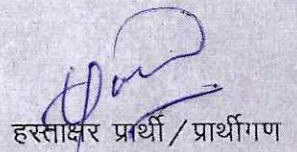 हस्ताक्षर प्रार्थी / प्रार्थीगण